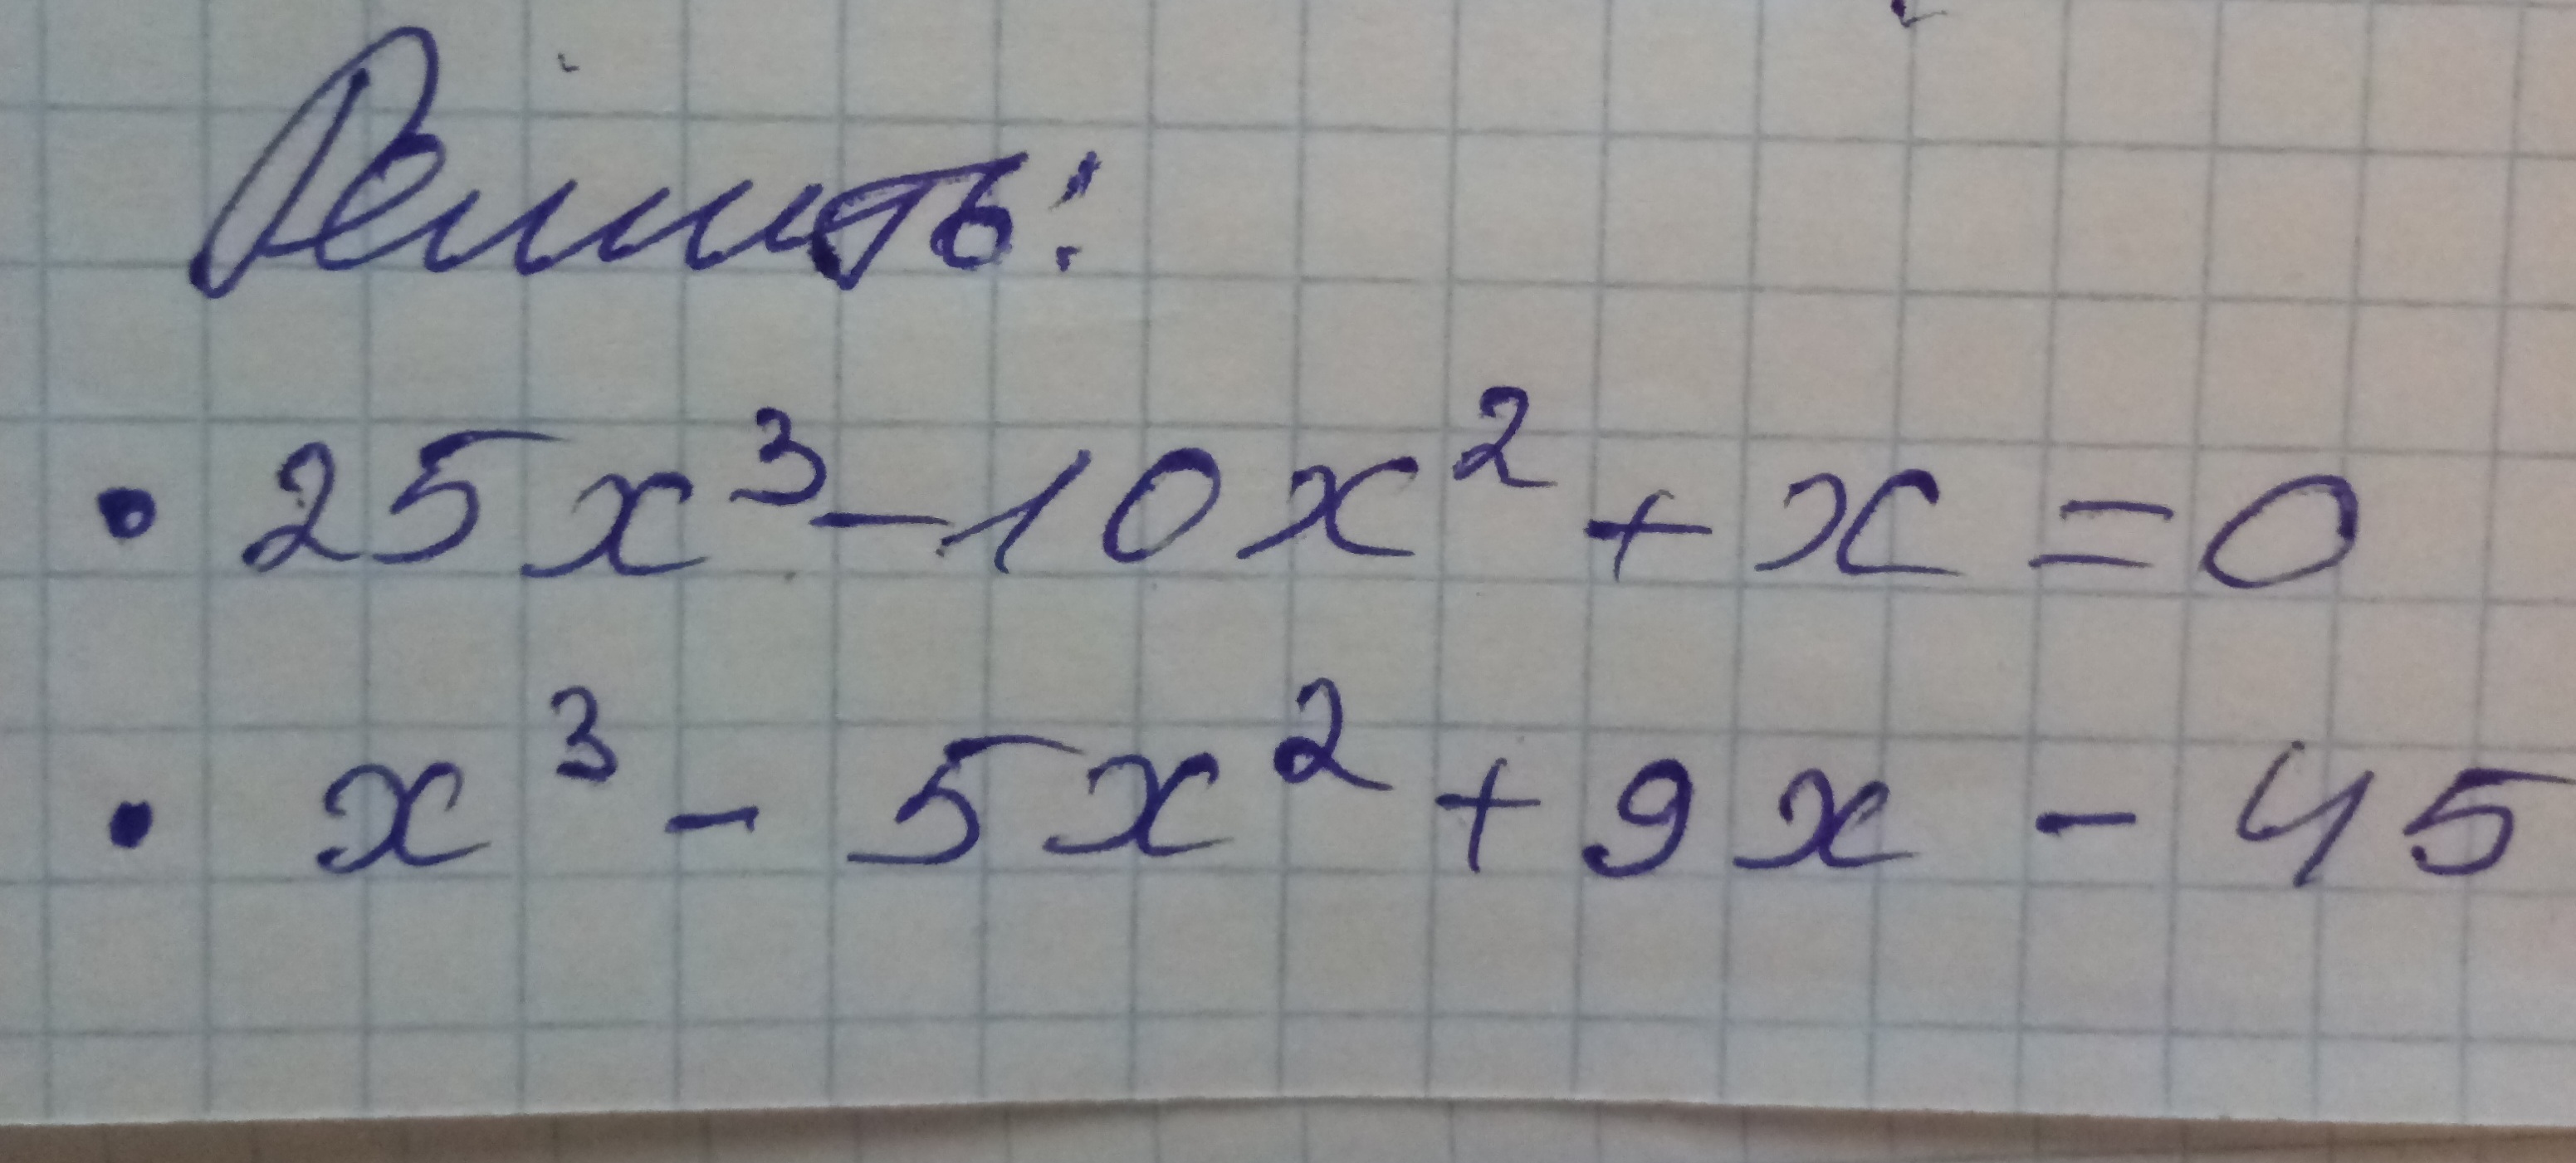 Решить:
• 25x³ - 10x² + x = 0
• x³ - 5x² + 9x - 45